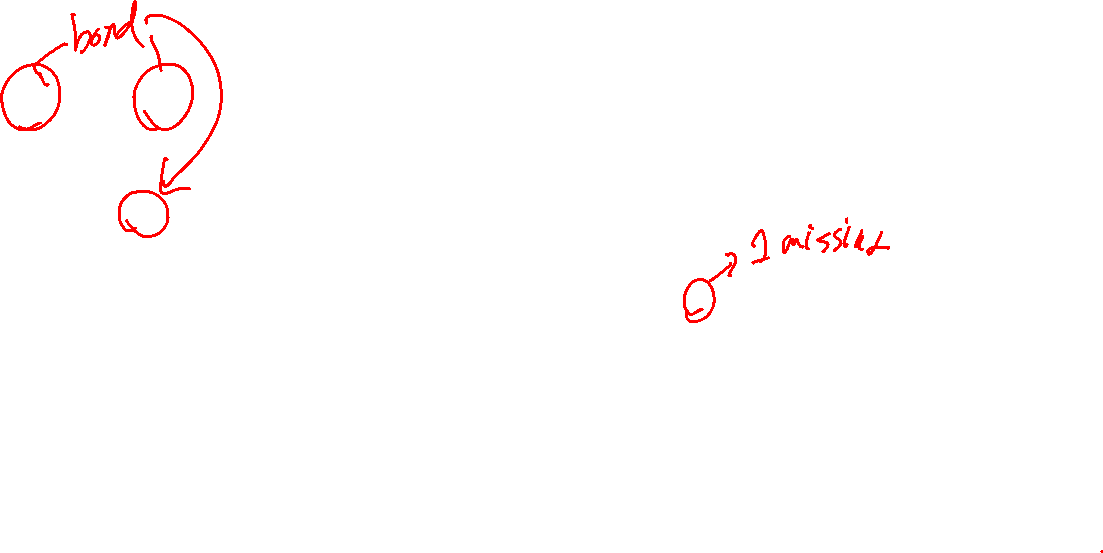 bond
1 missing